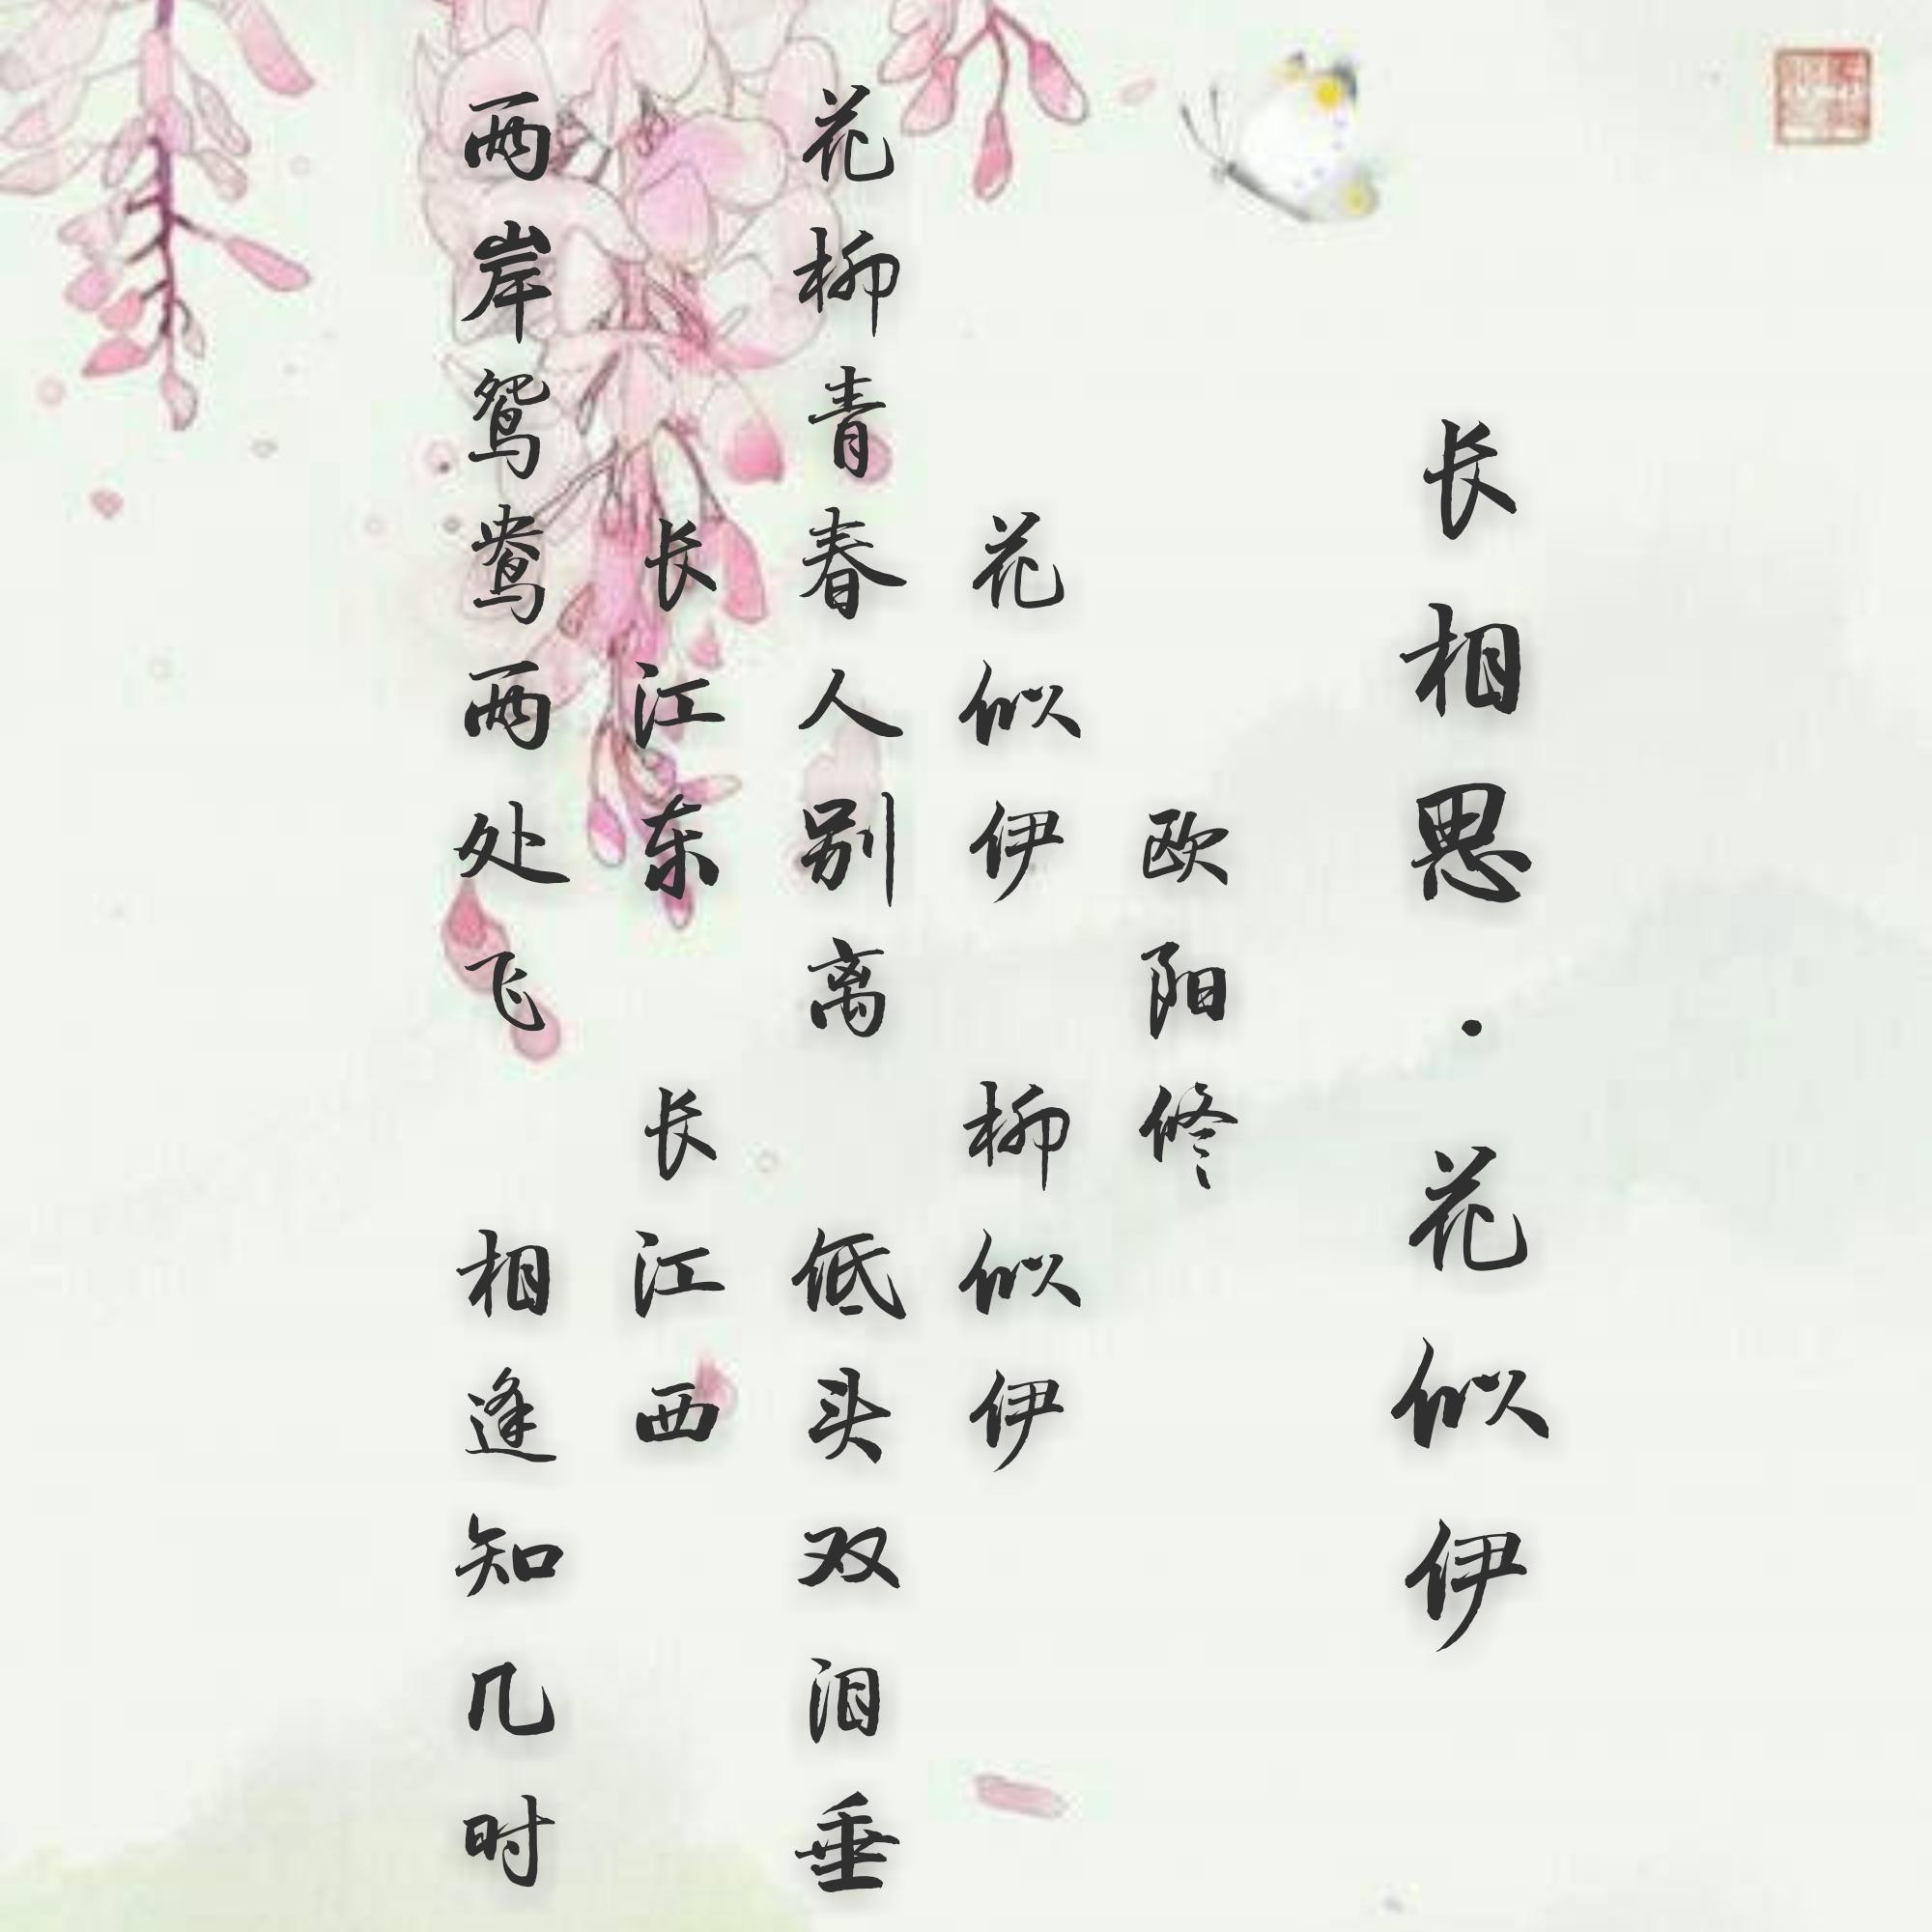 长相思·花似伊
欧阳修
花似伊 柳似伊
花柳青春人别离 低头双泪垂
长江东 长江西
两岸鸳鸯两处飞 相逢知几时